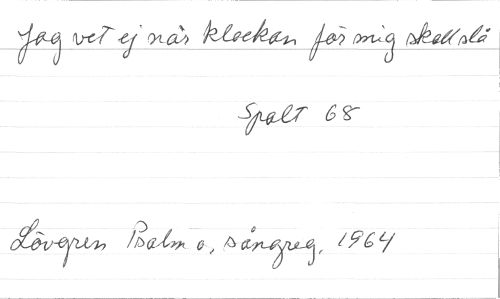 Jag vet ej när klockan för mig skall slå
Spalt 68
Lövgren Psalm o. sångreg. 1964